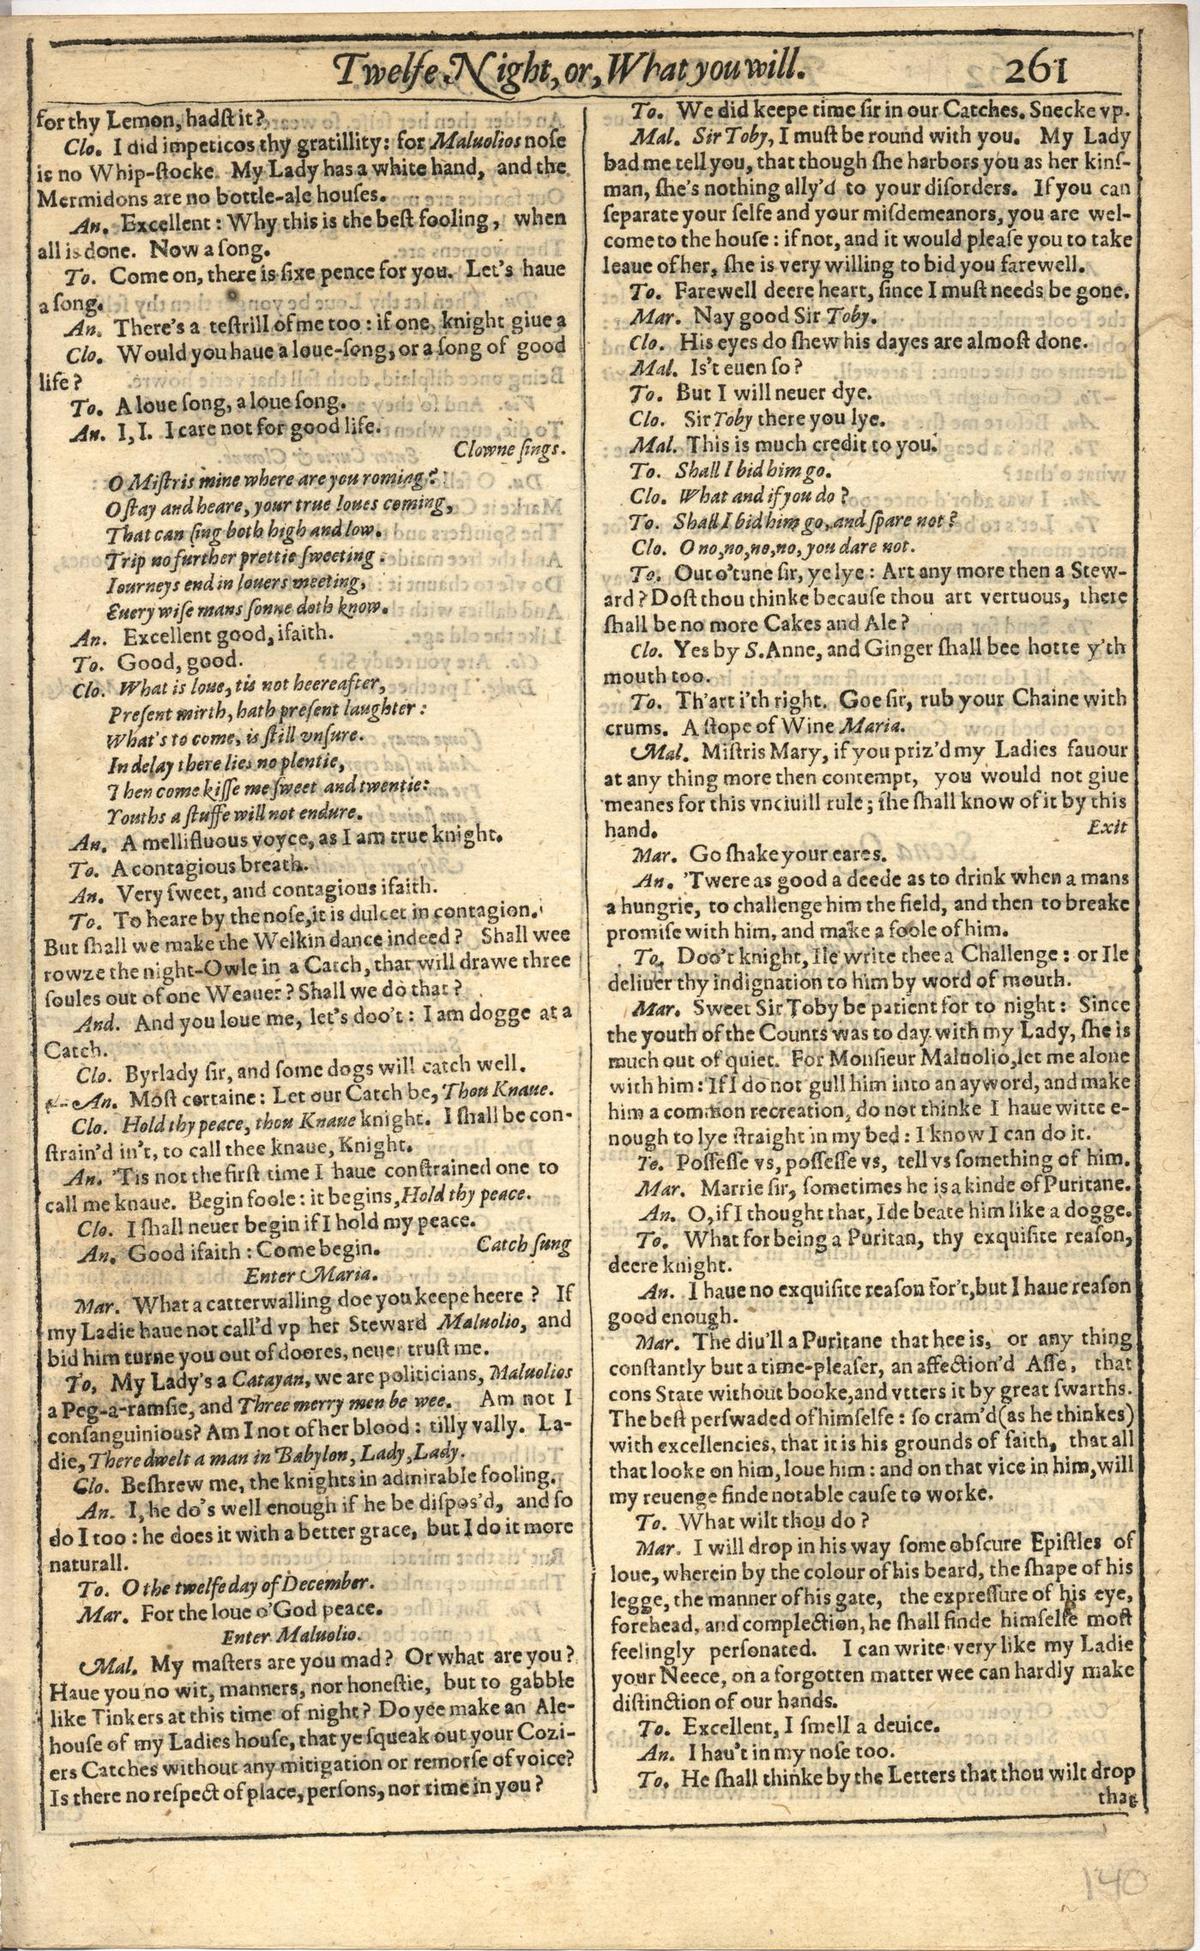 Twelfe Night, or, What you will. 261
for thy Lemon, hadſt it?
Clo. I did impeticos thy gratillity: for Maluolios noſe
is no Whip-ſtocke. My Lady has a white hand, and the
Mermidons are no bottle-ale houſes.
An. Excellent: Why this is the beſt fooling, when
all is done. Now a ſong.
To. Come on, there is ſixe pence for you. Let's haue
a ſong.
An. There's a teſtrill of me too: if one knight giue a
Clo. Would you haue a loue-ſong, or a ſong of good
life?
To. A loue ſong, a loue ſong.
An. I, I. I care not for good life.
Clowne ſings.
O Miſtris mine where are you roming?
O ſtay and heare, your true loues coming,
That can ſing both high and low.
Trip no further prettie ſweeting.
Iourneys end in louers meeting,
Euery wiſe mans ſonne doth know.
An. Excellent good, ifaith.
To. Good, good.
Clo. What is loue, tis not heereafter,
Preſent mirth, hath preſent laughter:
What's to come, is ſtill vnſure.
In delay there lies no plentie,
Then come kiſſe me ſweet and twentie:
Youths a ſtuffe will not endure.
An. A mellifluous voyce, as I am true knight.
To. A contagious breath.
An. Very ſweet, and contagious ifaith.
To. To heare by the noſe, it is dulcet in contagion.
But ſhall we make the Welkin dance indeed? Shall wee
rowze the night-Owle in a Catch, that will drawe three
ſoules out of one Weauer? Shall we do that?
And. And you loue me, let's doo't: I am dogge at a
Catch.
Clo. Byrlady ſir, and ſome dogs will catch well.
An. Moſt certaine: Let our Catch be, Thou Knaue.
Clo. Hold thy peace, thou Knaue knight. I ſhall be con-
ſtrain'd in't, to call thee knaue, Knight.
An. 'Tis not the firſt time I haue conſtrained one to
call me knaue. Begin foole: it begins, Hold thy peace.
Clo. I ſhall neuer begin if I hold my peace.
An. Good ifaith: Come begin. Catch ſung
Enter Maria.
Mar. What a catterwalling doe you keepe heere? If
my Ladie haue not call'd vp her Steward Maluolio, and
bid him turne you out of doores, neuer truſt me.
To. My Lady's a Catayan, we are politicians, Maluolios
a Peg-a-ramſie, and Three merry men be wee. Am not I
conſanguinious? Am I not of her blood: tilly vally. La-
die, There dwelt a man in Babylon, Lady, Lady.
Clo. Beſhrew me, the knights in admirable fooling.
An. I, he do's well enough if he be diſpos'd, and ſo
do I too: he does it with a better grace, but I do it more
naturall.
To. O the twelfe day of December.
Mar. For the loue o'God peace.
Enter Maluolio.
Mal. My maſters are you mad? Or what are you?
Haue you no wit, manners, nor honeſtie, but to gabble
like Tinkers at this time of night? Do yee make an Ale-
houſe of my Ladies houſe, that ye ſqueak out your Cozi-
ers Catches without any mitigation or remorſe of voice?
Is there no reſpect of place, perſons, nor time in you?
To. We did keepe time ſir in our Catches. Snecke vp.
Mal. Sir Toby, I muſt be round with you. My Lady
bad me tell you, that though ſhe harbors you as her kinſ-
man, ſhe's nothing ally'd to your diſorders. If you can
ſeparate your ſelfe and your miſdemeanors, you are wel-
come to the houſe: if not, and it would pleaſe you to take
leaue of her, ſhe is very willing to bid you farewell.
To. Farewell deere heart, ſince I muſt needs be gone.
Mar. Nay good Sir Toby.
Clo. His eyes do ſhew his dayes are almoſt done.
Mal. Is't euen ſo?
To. But I will neuer dye.
Clo. Sir Toby there you lye.
Mal. This is much credit to you.
To. Shall I bid him go.
Clo. What and if you do?
To. Shall I bid him go, and ſpare not?
Clo. O no, no, no, no, you dare not.
To. Out o'tune ſir, ye lye: Art any more then a Stew-
ard? Doſt thou thinke becauſe thou art vertuous, there
ſhall be no more Cakes and Ale?
Clo. Yes by S. Anne, and Ginger ſhall bee hotte y'th
mouth too.
To. Th'art i'th right. Goe ſir, rub your Chaine with
crums. A ſtope of Wine Maria.
Mal. Miſtris Mary, if you priz'd my Ladies fauour
at any thing more then contempt, you would not giue
meanes for this vnciuill rule; ſhe ſhall know of it by this
hand. Exit
Mar. Go ſhake your eares.
An. 'Twere as good a deede as to drink when a mans
a hungrie, to challenge him the field, and then to breake
promiſe with him, and make a foole of him.
To. Doo't knight, Ile write thee a Challenge: or Ile
deliuer thy indignation to him by word of mouth.
Mar. Sweet Sir Toby be patient for to night: Since
the youth of the Counts was to day with my Lady, ſhe is
much out of quiet. For Monſieur Maluolio, let me alone
with him: If I do not gull him into an ayword, and make
him a common recreation, do not thinke I haue witte e-
nough to lye ſtraight in my bed: I know I can do it.
To. Poſſeſſe vs, poſſeſſe vs, tell vs ſomething of him.
Mar. Marrie ſir, ſometimes he is a kinde of Puritane.
An. O, if I thought that, Ide beate him like a dogge.
To. What for being a Puritan, thy exquiſite reaſon,
deere knight.
An. I haue no exquiſite reaſon for't, but I haue reaſon
good enough.
Mar. The diu'll a Puritane that hee is, or any thing
conſtantly but a time-pleaſer, an affection'd Aſſe, that
cons State without booke, and vtters it by great ſwarths.
The beſt perſwaded of himſelfe: ſo cram'd (as he thinkes)
with excellencies, that it is his grounds of faith, that all
that looke on him, loue him: and on that vice in him, will
my reuenge finde notable cauſe to worke.
To. What wilt thou do?
Mar. I will drop in his way ſome obſcure Epiſtles of
loue, wherein by the colour of his beard, the ſhape of his
legge, the manner of his gate, the expreſſure of his eye,
forehead, and complection, he ſhall finde himſelfe moſt
feelingly perſonated. I can write very like my Ladie
your Neece, on a forgotten matter wee can hardly make
diſtinction of our hands.
To. Excellent, I ſmell a deuice.
An. I hau't in my noſe too.
To. He ſhall thinke by the Letters that thou wilt drop
that
140